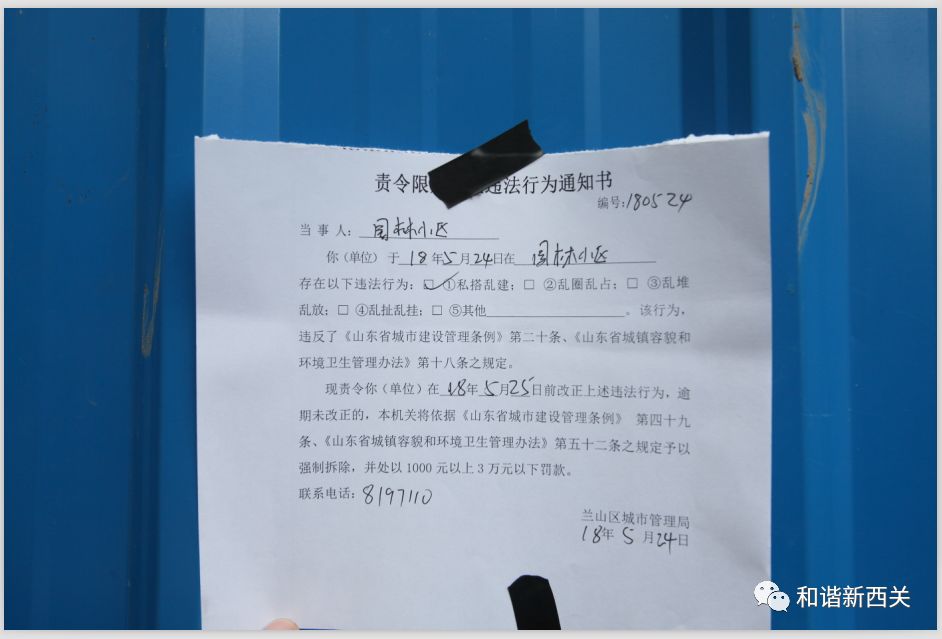 责令限 违法行为通知书
编号:180524
当 事 人: 园林小区
你（单位）于 18 年 5 月 24 日在 园林小区
存在以下违法行为：☑ ①私搭乱建；□ ②乱圈乱占；□ ③乱堆
乱放；□ ④乱扯乱挂；□ ⑤其他 。该行为，
违反了《山东省城市建设管理条例》第二十条、《山东省城镇容貌和
环境卫生管理办法》第十八条之规定。
现责令你（单位）在 18 年 5 月 25 日前改正上述违法行为，逾
期未改正的，本机关将依据《山东省城市建设管理条例》 第四十九
条、《山东省城镇容貌和环境卫生管理办法》第五十二条之规定予以
强制拆除，并处以 1000 元以上 3 万元以下罚款。
联系电话：8197110
兰山区城市管理局
18年 5 月24日
和谐新西关